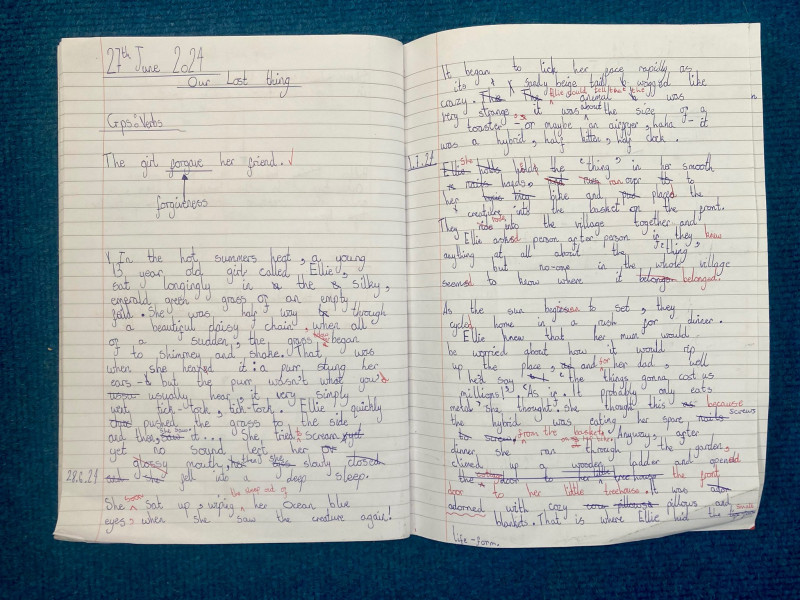 27th June 2024
Our Lost thing
Gps: Verbs
The girl forgave her friend.
forgiveness
In the hot summers heat, a young
13 year old girl called Ellie,
sat longingly in the silky,
emerald green grass of an empty
field. She was half way through
a beautiful daisy chain, when all
of a sudden, the grass began
to shimmey and shake. That was
when she hearerd it: a purr stung her
ears - but the purr wassn't what you'd
usually hear, it very simply
went tick-tock, tick-tock. Ellie quickly
pushed the grass to the side
and then, she saw it... She tried to scream yet
yet no sound left her
glossy mouth, then she slowly closed
28.6.24 she fell into a deep sleep.
She soon sat up, wiping the sleep out of her ocean blue
eyes, when she saw the creature again!
It began to lick her face rapidly as
its sandy beige tail wagged like
crazy. Ellie could tell that the animal was
very strange, as it was about the size of a
toaster - or maybe an airfryer, haha - it
was a hybrid, half kitten, half clock.
1.7.24 She held the "thing" in her smooth
hands, ran over to
her bike and placed the
creature into the basket on the front.
They rode into the village together and
Ellie asked person after person if they knew
anything at all about the "thing",
but no-one in the whole village
seemed to know where it belonge belonged.
As the sun began to set, they
cycled home in a rush for dinner.
Ellie knew that her mum would
be worried about how it would rip
up the place, and for her dad, well
he'd say "the things gonna cost us
millions!" As if. It probably only eats
metal she thought. She though this because
the hybrid was eating her spare screws
from the basket. Anyway, after
dinner she ran through the garden,
climed up a wooden ladder and opened
the front
door to her little treehouse. It was
adorned with cozy pillows and
blankets. That is where Ellie hid the small
life-form.